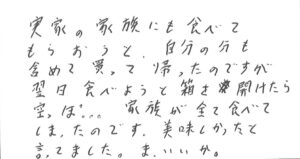 実家の家族にも食べて
もらおうと、自分の分も
含めて買って帰ったのですが
翌日食べようと箱を開けたら
空っぽ… 家族が全て食べて
しまったのです。美味しかったと
言ってました。ま、いいか。